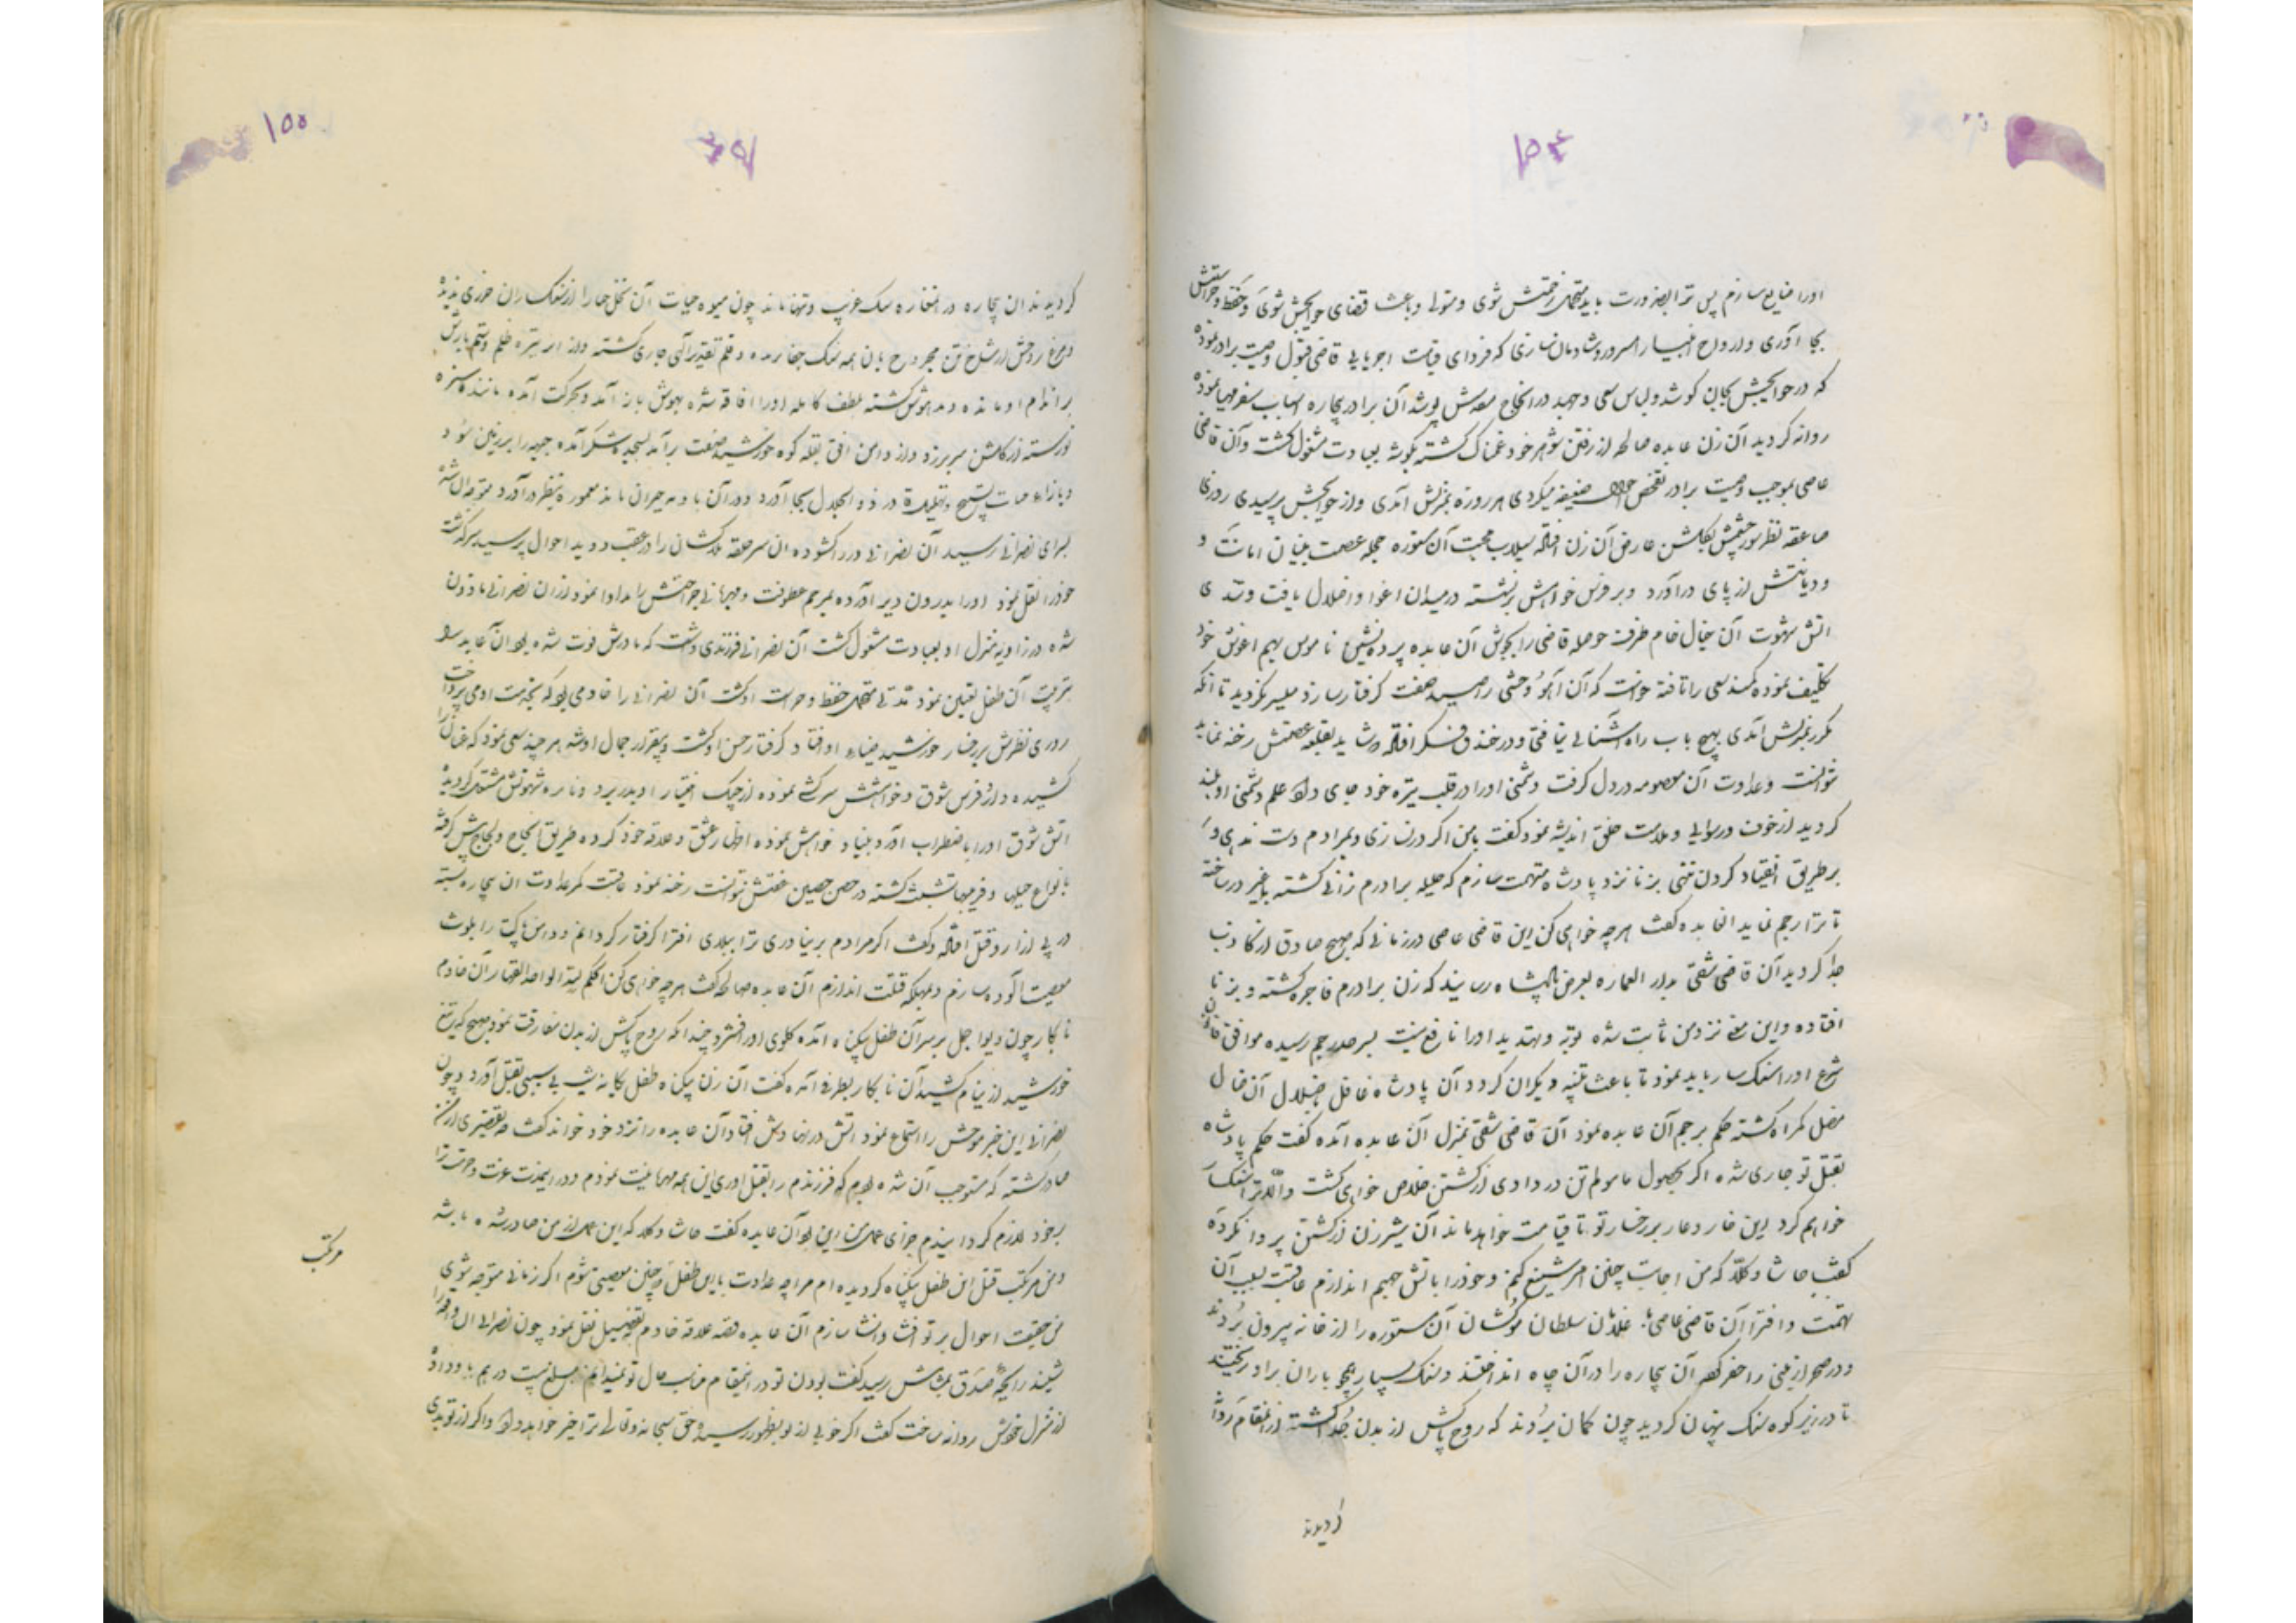 ۱۵۴
اورا ضایع سازم پس ترا بضرورت باید متحمل زحمتش شوی و متولی و باعث قضای حوایجش شوی و حفظ و حراستش
بجا آوری و ارواح انبیا را مسرور و شادمان سازی که فردای قیامت اجر یابی قاضی قبول وصیت برادر نموده
که در حوایجش بجان کوشد و لباس سعی و جهد در انجاح مقصدش پوشد آن برادر بیچاره اسباب سفر مهیا نموده
روانه کردید آن زن عابده صالحه از رفتن شوهر خود غمناک کشته بکوشه بعبادت مشغول کشت و آن قاضی
عاصی بموجب وصیت برادر تفحص احوال ضعیفه میکردی هر روزه بمنزلش آمدی و از حوایجش پرسیدی روزی
صاعقه نظر سور چشمش بکلشن عارض آن زن افتاد سیلاب محبت آن مستوره حجله عصمت بنیان امانت و
و دیانتش از پای درآورد و بر فرس خواهش نشسته در میدان اغوا و اضلال یافت و تندی
اتش شهوت آن خیال خام ظرف حوصله قاضی را بجوش آن عابده پرده نشین ناموس بهم اغوش خود
تکلیف نموده کمند سعی را تافته خواست که آن آهو وحشی را صید صفت کرفتار سازد میسر نکردید تا آنکه
مکرر بمنزلش آمدی بهیچ باب راه آشنائی نیافتی و در خندق فکر افتاد که شاید بقلعه عصمتش رخنه نماید
نتوانست و عداوت آن معصومه در دل کرفت و دشمنی اورا در قلب تیره خود جای داد علم دشمنی او بلند
کردید از خوف رسوایی و ملامت خلق اندیشه نمود کفت با من اکر درنسازی و بمرادم دست ندهی و
بر طریق انقیاد کردن ننهی بزنا نزد پادشاه متهمت سازم که حلیله برادرم زانی کشته با غیر درساخته
تا ترا رجم نماید انعابده کفت هر چه خواهی کن این قاضی عاصی در زمانی که صبح صادق از کاذب
جدا کردید آن قاضی شقی بدار العماره بعرض پادشاه رسانید که زن برادرم فاجره کشته و بزنا
افتاده و این معنی نزد من ثابت شده توبه و تهدید اورا نافع نیست بسرحد رجم رسیده موافق قانون
شرع اورا سنکسار باید نمود تا باعث تنبیه دیکران کردد آن پادشاه غافل بضلال آن ضال
مضل کمراه کشته حکم برجم آن عابده نمود آن قاضی شقی بمنزل آن عابده آمده کفت حکم پادشاه
بقتل تو جاری شده اکر بحصول مامولم تن در دادی از کشتن خلاص خواهی کشت و الا ترا سنکسار
خواهم کرد این خار و عار بر رخسار تو تا قیامت خواهد ماند آن شیر زن از کشتن پروا نکرده
کفت حاشا و کلا که من اجابت چنین امر شنیع کنم و خودرا باتش جهیم اندازم عاقبت بسبب آن
تهمت و افترا آن قاضی عاصی غلامان سلطان موکشان آن مستوره را از خانه بیرون بردند
و در صحرا زمینی را حفر کرده آن بیچاره را در آن چاه انداختند و سنک بسیار همچو باران بر او ریختند
تا در زیر کوه سنک پنهان کردید چون کمان بردند که روح پاکش از بدن جدا کشته از آنمقام روان
کردیدند
۱۵۵
کردیدند ان بیچاره در انمغاره سنک غریب و تنها ماند چون میوه حیات آن نخل حیا را از سنکباران ضرری ندیده
و مرغ روحش از شاخ تن مجروح بان همه سنک جفا نرمیده و قلم تقدیر آلهی جاری کشته و از ابر تیره ظلم و ستم بارش
بر اندام او مانده و مدهوش کشته لطف کامله اورا افاقه شده بهوش باز آمد و بحرکت آمده مانند سبزه
نورسته از کلشن سر برزد و از دامن افق بقله کوه خورشید صفت برآمد بسجده شکر آمده جبهه را بر زمین سود
و بازاء حیات تسبیح و تهلیل قادر ذو الجلال بجا آورد و در آن بادیه حیران ماند معموره بنظر درآورد متوجه ان شد
بسرای نصرانی رسید آن نصرانی در را کشوده ان سرحلقه بلاکشان را در عقب در دید احوال پرسید سرکذشت
خودرا نقل نمود اورا بدرون دیر آورده بمرهم عطوفت و مهربانی جراحتش را مداوا نمود از آن نصرانی ماذون
شده در زاویه منزل او بعبادت مشغول کشت آن نصرانی فرزندی داشت که مادرش فوت شده بود ان عابده را
بتربیت آن طفل تعیین نمود مدتی متحمل حفظ و حراست او کشت آن نصرانی را خادمی بود که بخدمت او می پرداخت
روزی نظرش بر رخسار خورشید ضیاء او افتاد کرفتار حسن او کشت و بیقرار جمال او شد هر چند سعی نمود که عنان را
کشیده دارد فرس شوق و خواهشش سرکشی نموده از چنک اختیار او بدر برد و نایره شهوتش مشتعل کردیده
اتش شوق اورا باضطراب آورد بنیاد خواهش نموده اظهار عشق و علاقه خود کرده طریق انجاح و لجاج پیش کرفته
بانواع حیلها و فریبها متشبث کشته در حصن حصین عفتش نتوانست رخنه نمود عاقبت کمر عداوت ان بیچاره بسته
در پی ازار و قتل افتاد و کفت اکر مرادم برنیاوری ترا ببلای افترا کرفتار کردانم و دامن پاکت را بلوث
معصیت آلوده سازم و بمهلکه قتلت اندازم آن عابده صالحه کفت هر چه خواهی کن الحکم لله الواحد القهار آن خادم
نابکار چون دیو اجل بر سر آن طفل بیکناه آمده کلوی اورا فشرد چندانکه روح پاکش از بدن مفارقت نمود صبح که تیغ
خورشید از نیام کشید آن نابکار بطرفی آمده کفت آن زن بیکناه طفل بیکانه شب بی سببی بقتل آورد چون
نصرانی این خبر موحش را استماع نمود اتش در نهادش افتاد آن عابده را نزد خود خواند کفت چه تقصیری از من
صادر کشته که مستوجب آن شده بودم که فرزندم را بقتل اوری این همه مهمانیت نمودم و در اینمدت عزت و حرمت ترا
برخود لازم کردانیدم جزای عمل من این بود آن عابده کفت حاشا و کلا که این عمل از من صادر شده باشد
و من مرتکب قتل این طفل بیکناه کردیده ام مرا چه عداوت با این طفل که چنین معصیتی شوم اکر زمانی متوجه شوی
من حقیقت احوال بر تو افشا و انشا سازم آن عابده قصه علاقه خادم بتفصیل نقل نمود چون نصرانی ان واقعه را
شنید رایحه صدق بمشامش رسید کفت بودن تو در اینمقام مناسب حال تو نمیدانم مبلغ بیست درهم باو داده
از منزل خودش روانه ساخت کفت اکر خوبی از تو بظهور رسیده حق سبحانه و تعالی ترا خیر خواهد داد و اکر از تو بدی
مرتکب